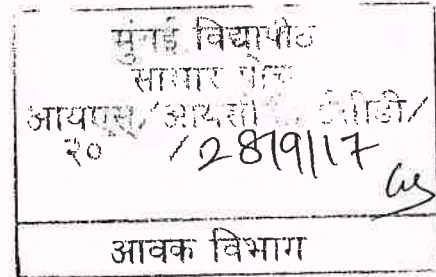 मुंबई विद्यापीठ
साभार पोच
आयएस/आयसी ईसीडी/
२० / 28/9/17
आवक विभाग